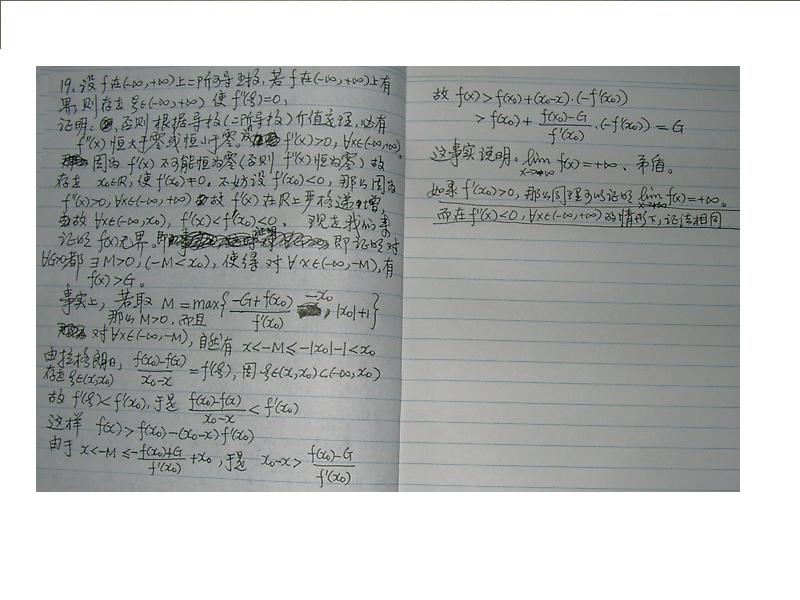 19. 设f在(-∞,+∞)上二阶可导且f'', 若f在(-∞,+∞)上有
界, 则存在ξ∈(-∞,+∞) 使f''(ξ)=0.
证明: 否则根据导数(二阶导数)介值定理, 必有
f''(x)恒大于零或恒小于零, f''(x)>0, ∀x∈(-∞,+∞).
因为f'(x)不可能恒为零(否则f''(x)恒为零)故
存在 x₀∈R, 使f'(x₀)≠0. 不妨设f'(x₀)<0, 那么因为
f''(x)>0, ∀x∈(-∞,+∞) 故f'(x)在R上严格递增,
故∀x∈(-∞,x₀), f'(x)<f'(x₀)<0. 现在我们来
证明f(x)无界. 即证明对
∀G>0都∃M>0, (-M<x₀), 使得对∀x∈(-∞,-M), 有
f(x)>G.
事实上, 若取 M=max{(-G+f(x₀))/f'(x₀) -x₀, |x₀|+1}
那么M>0, 而且
对∀x∈(-∞,-M), 自然有 x<-M≤-|x₀|-1<x₀
由拉格朗日, (f(x₀)-f(x))/(x₀-x) = f'(ξ), 因ξ∈(x,x₀)⊂(-∞,x₀)
存在ξ∈(x,x₀)
故 f'(ξ)<f'(x₀), 于是 (f(x₀)-f(x))/(x₀-x) < f'(x₀)
这样 f(x)>f(x₀)-(x₀-x)f'(x₀)
由于 x<-M≤(-f(x₀)+G)/f'(x₀)+x₀, 于是 x₀-x>(f(x₀)-G)/f'(x₀)
故 f(x)>f(x₀)+(x₀-x)·(-f'(x₀))
>f(x₀)+(f(x₀)-G)/f'(x₀)·(-f'(x₀))=G
这事实说明: lim x→-∞ f(x)=+∞. 矛盾.
如果f'(x₀)>0, 那么同理可以证明 lim x→+∞ f(x)=+∞.
而在f''(x)<0, ∀x∈(-∞,+∞)的情形下, 证法相同